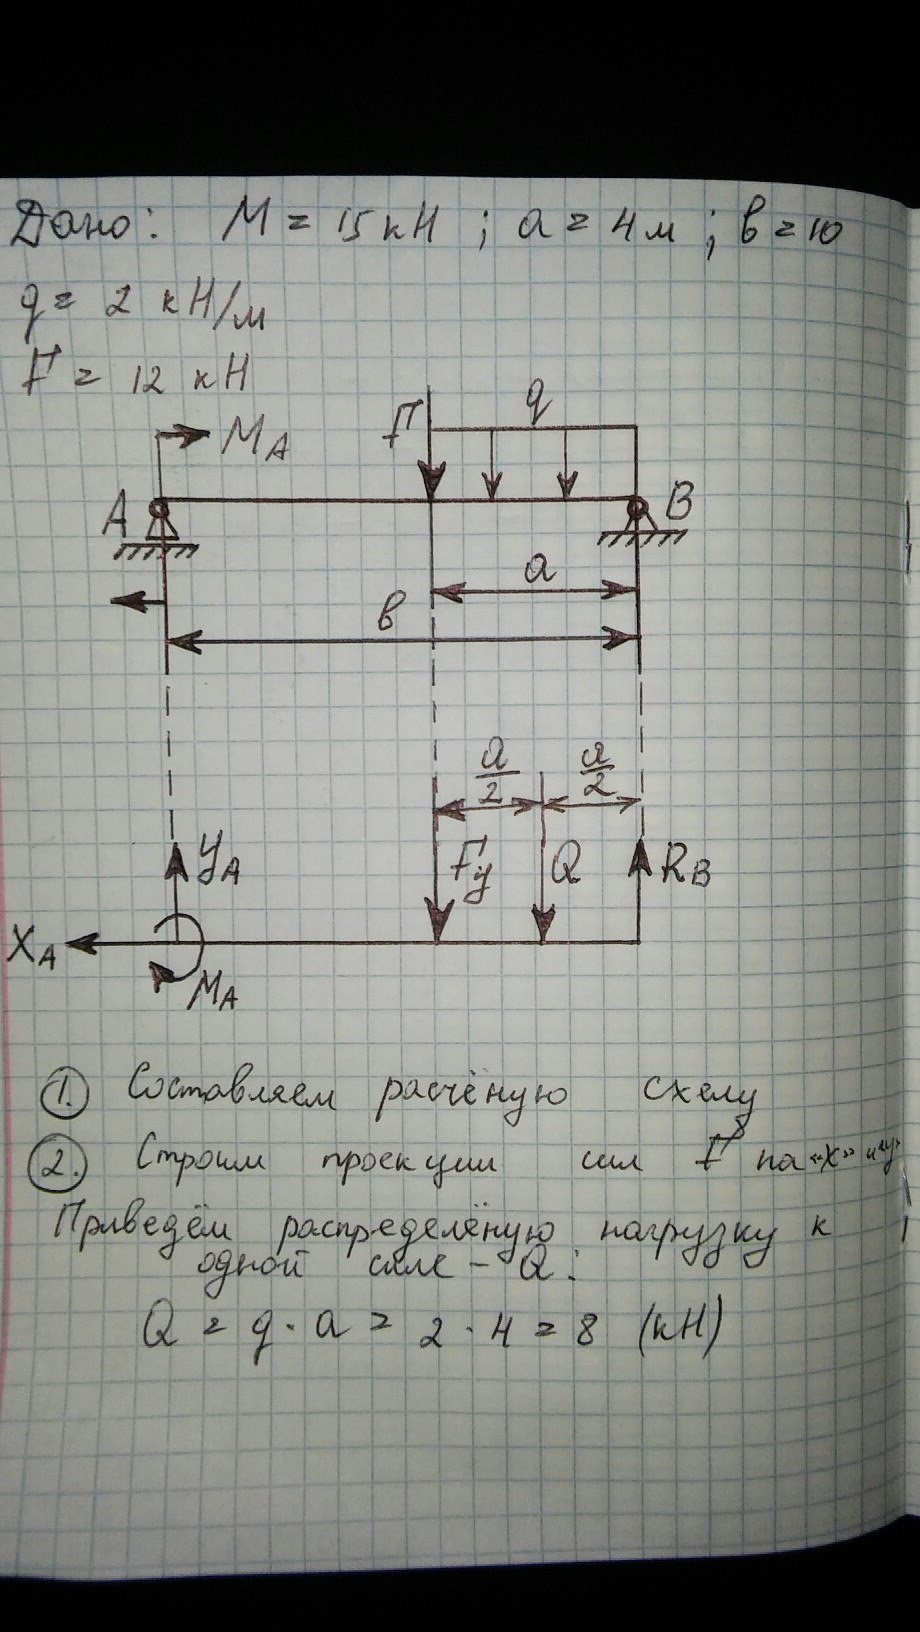 Дано: M = 15 кН ; a = 4 м ; в = 10
q = 2 кН/м
F = 12 кН
q
F
M_A
A
B
a
в
a/2 a/2
Y_A
F_y
Q
R_B
X_A
M_A
1. Составляем расчёную схему
2. Строим проекции сил F на "x" и "y"
Приведём распределёную нагрузку к
одной силе - Q:
Q = q · a = 2 · 4 = 8 (кН)